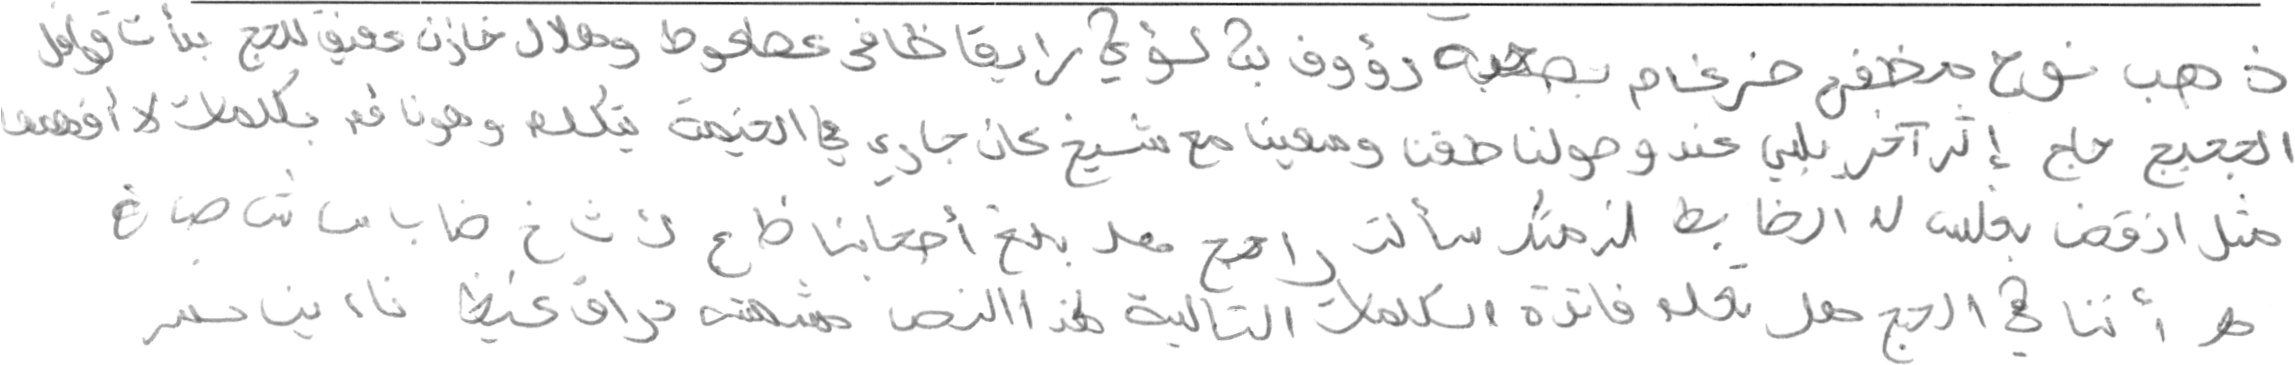 ذهب نوح مظفر ضرغام بصحبة رؤوف بن لؤي راريقا ظافر عطعوط وهلال خازن عفيق للحج بدأت قوافل
الحجيج حاج إثر آخر يلبي عند وصولنا طفنا وسعينا مع شيخ كان جاري في الخيمة يتكلم وهو نائم بكلمات لا أفهمها
مثل انقض بجلس له الضابط لئن سألت راجح هل بلغ أصحابنا ظ ع ث خ ضا با سا شا صا غ
ه أننا في الحج هل تعلم فائدة الكلمات التالية لهذا النص